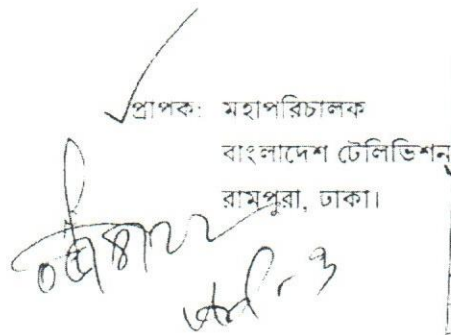 প্রাপক: মহাপরিচালক
বাংলাদেশ টেলিভিশন
রামপুরা, ঢাকা।